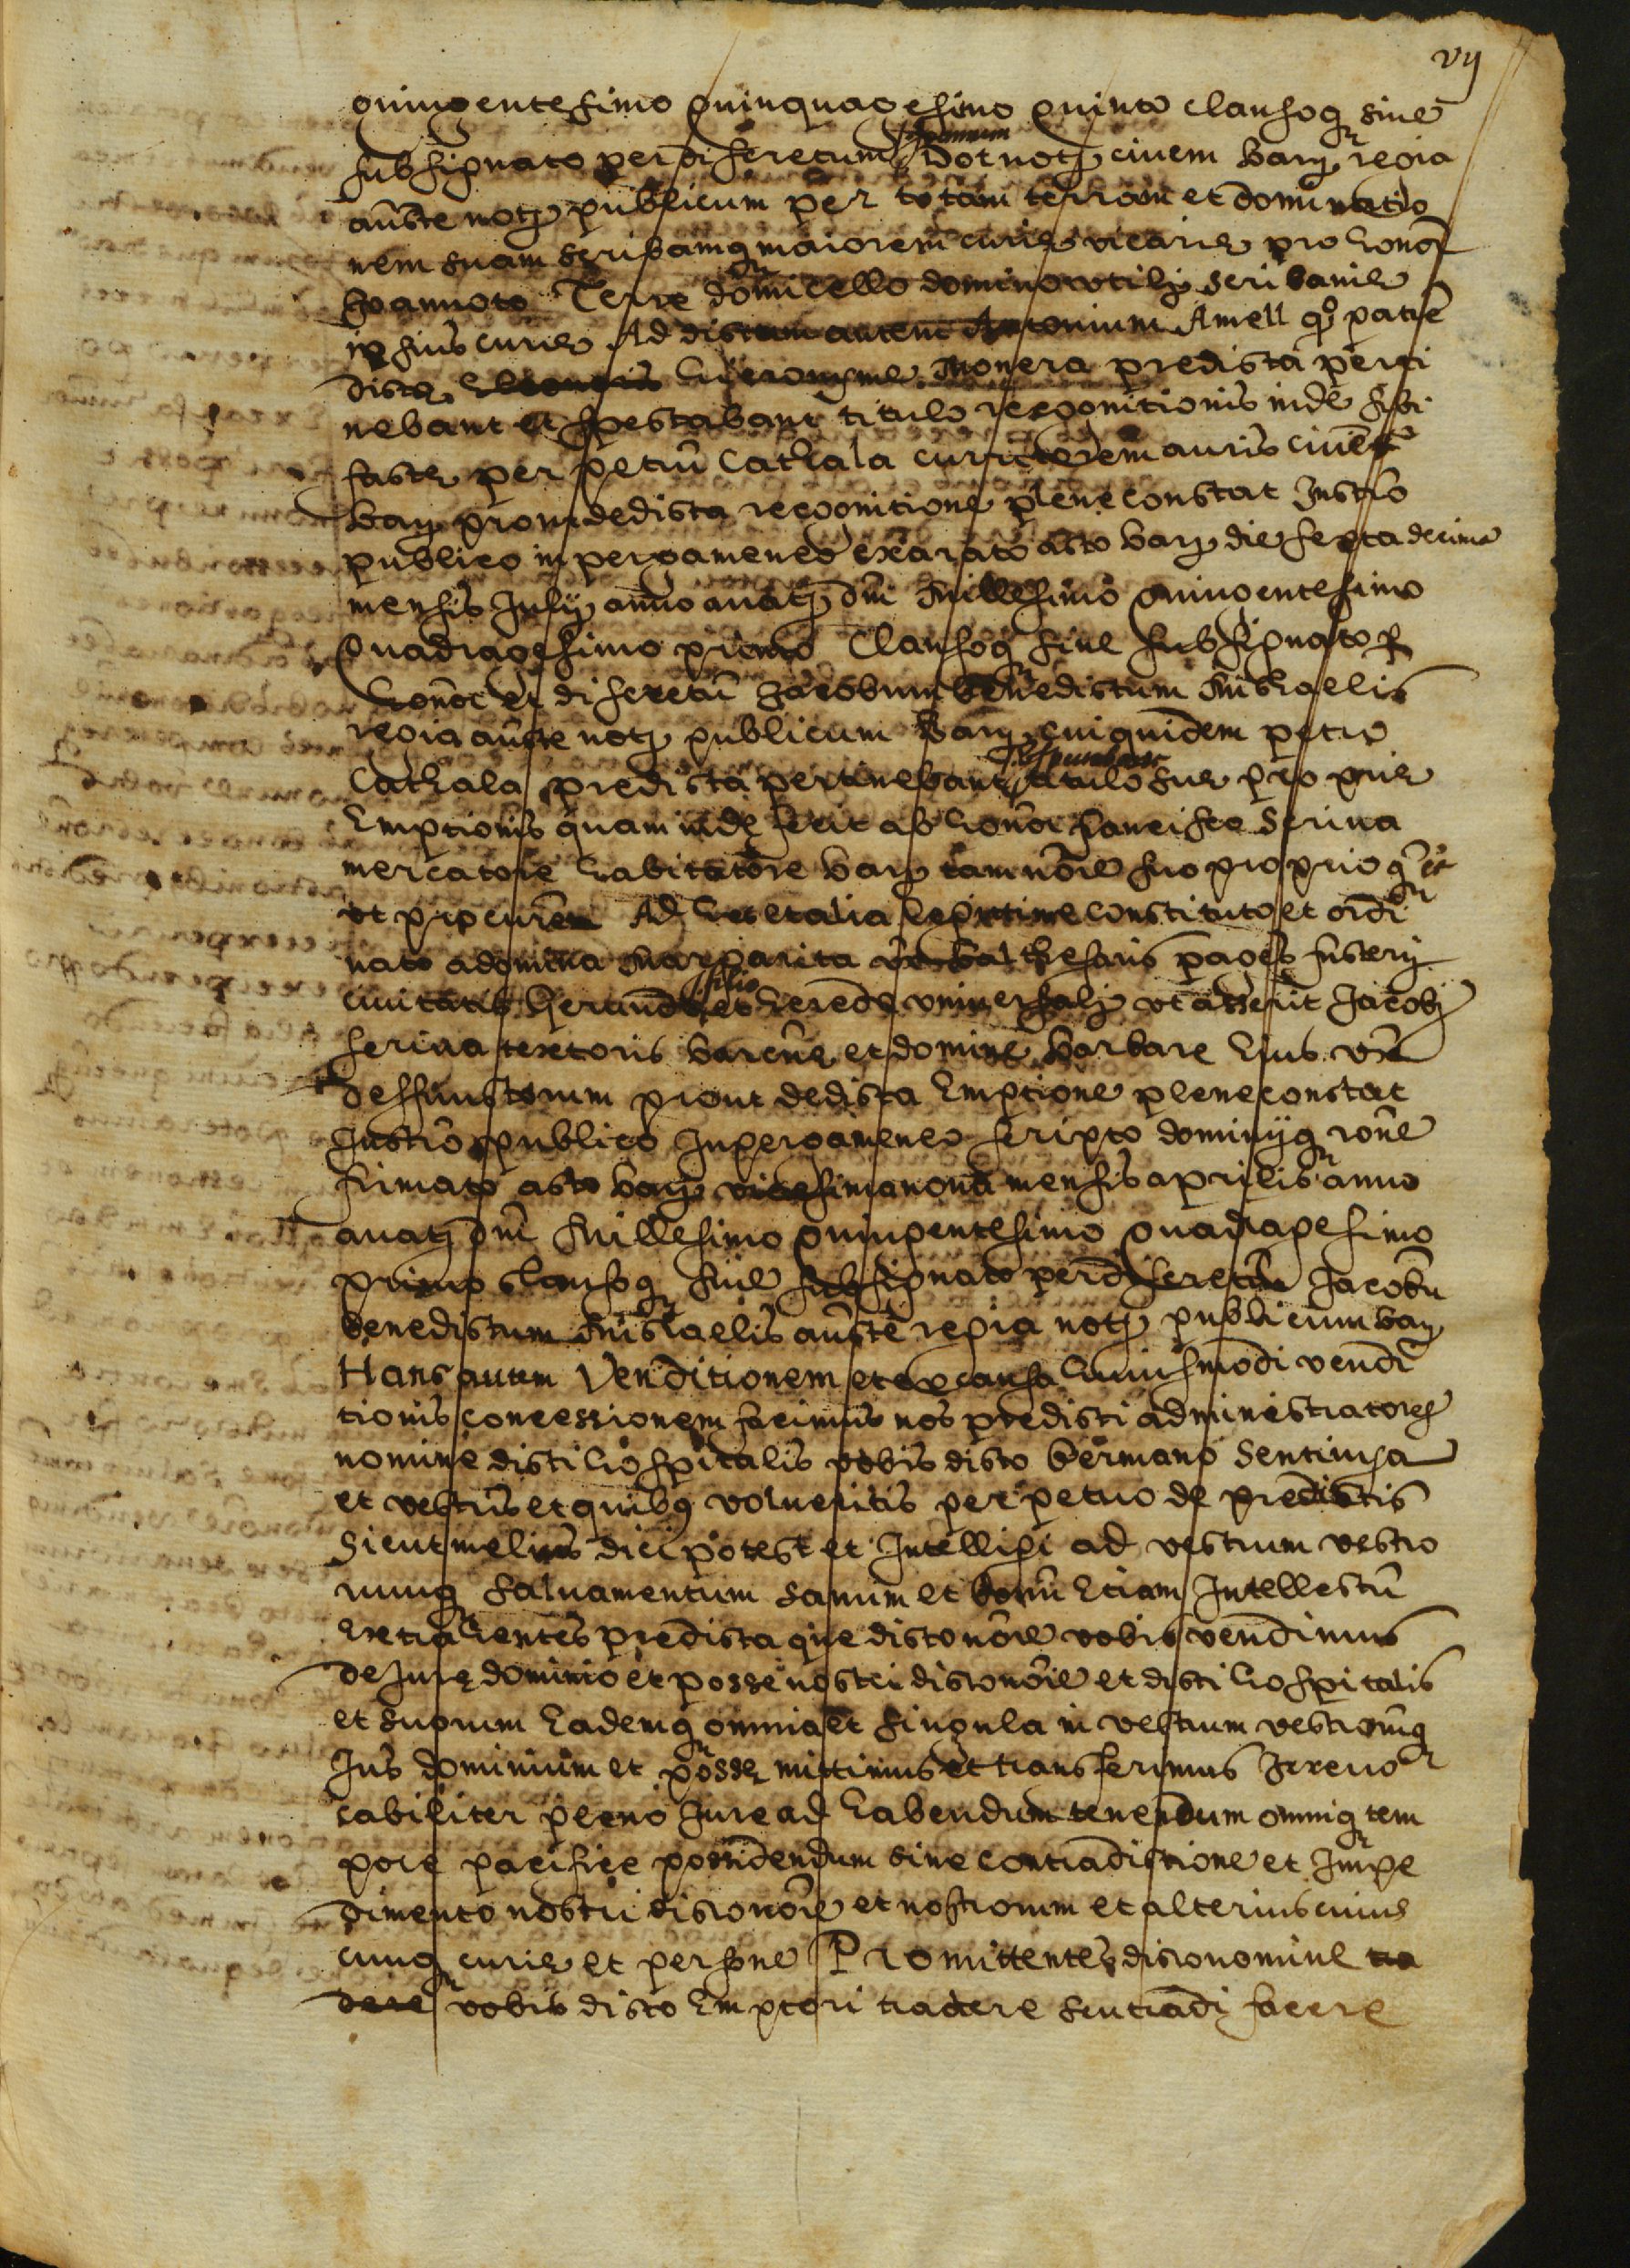 vij
quingentesimo quinquagesimo quinto clausoq sive
Johannem
subsignato per discretum Bot noty civem Barn regia
aucte noty publicum per totam terram et dominatio
nem suam scribamq maiorem curie vicarie pro honor
Joannoto Terre domicello domino utili scribanie
ipsius curie Ad dictum autem Antonium Amell qo patrē
dicte Hieronyme Monera predicta perti
nebant et spectabant titulo recognitionis inde sibi
facte per petrū Cathala curritorem auris civē
Barn prout de dicta recognitione plene constat Instro
publico in pergameneo exarato acto Barn die sexta decima
mensis July anno a naty dni Millesimo quingentesimo
quadragesimo primo Clausoq sive subsignato per
honor et discretū Jacobum Benedictum Michaelis
regia aucte noty publicum Barn cuiquidem petro
et spectabant
Cathala predicta pertinebant titulo sue pro prie
Emptionis quam inde fecit ab honor Francisco Serina
mercatore habitatore Barn tam nōie suo proprio q et
ut procurē Ad hec et alia legittime constituto et ordi
nato a domina Margarita balthesaris pages fustery
filio
civitatis Gerunde et herede universaly ut asserit Jacoby
serina textoris barcne et domine Barbare Eius ux
deffunctorum prout de dicta Emptione plene constat
Instro publico In pergameneo scripto dominijq rone
firmato acto Barn vicesima nona mensis aprilis anno
a naty dni Millesimo quingentesimo quadragesimo
primo clausoq sive subsignato per discretū Jacobū
benedictum Michaelis aucte regia noty publicum barn
Hanc autem Venditionem et ex causa huiusmodi vendi
tionis concessionem facimus nos predicti administratores
nomine dicti hospitalis vobis dicto Germano Sentinya
et vestris et quibus volueritis perpetuo de predictis
Sicut melius dici potest et Intelligi ad vestrum vestro
rumq salvamentum sanum et bonū Etiam Intellectū
Extrahentes predicta que dicto nōie vobis vendimus
de Jure dominio et posse nostri dicto nōie et dicti hospitalis
et suorum Eademq omnia et singula in vestrum vestrorūq
Jus dominium et posse mittimus et transferimus Irrevo
cabiliter pleno Jure ad habendum tenendum omniq tem
pore pacifice possidendum sine contradictione et Impe
dimento nostri dicto nōie et nostrorum et alterius cuius
cunq curie et persone Promittentes dicto nomine tra
dere vobis dicto Emptori tradere seu tradi facere